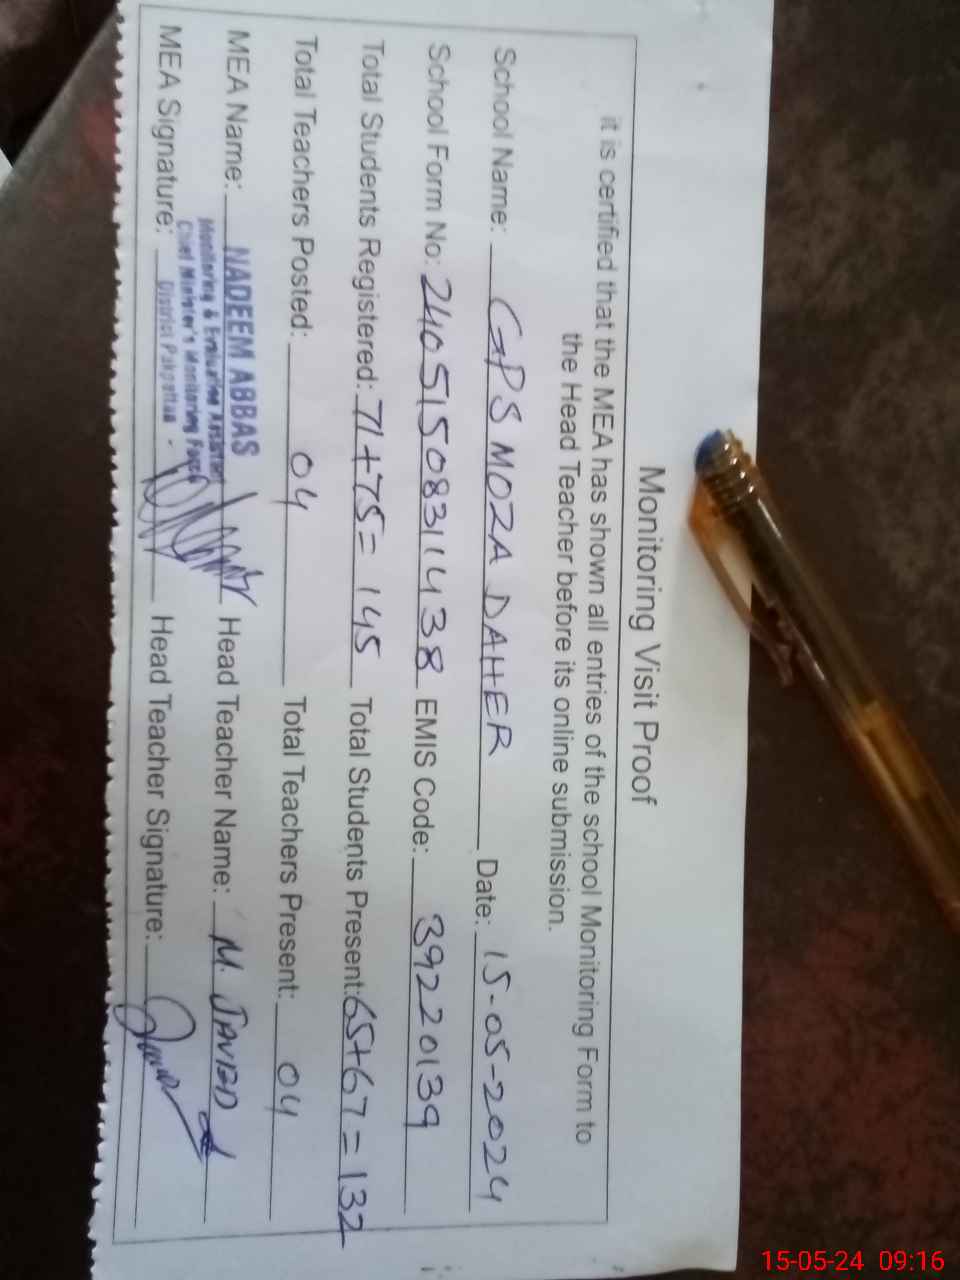 Monitoring Visit Proof
it is certified that the MEA has shown all entries of the school Monitoring Form to
the Head Teacher before its online submission.
School Name: GPS MOZA DAHER Date: 15-05-2024
School Form No: 24051508311438 EMIS Code: 39220139
Total Students Registered: 71+75= 145 Total Students Present: 65+67=132
Total Teachers Posted: 04 Total Teachers Present: 04
MEA Name: NADEEM ABBAS Head Teacher Name: M. JAVED
Monitoring & Evaluation Assistant
Chief Minister's Monitoring Force
MEA Signature: District Pakpattan Head Teacher Signature:
15-05-24 09:16